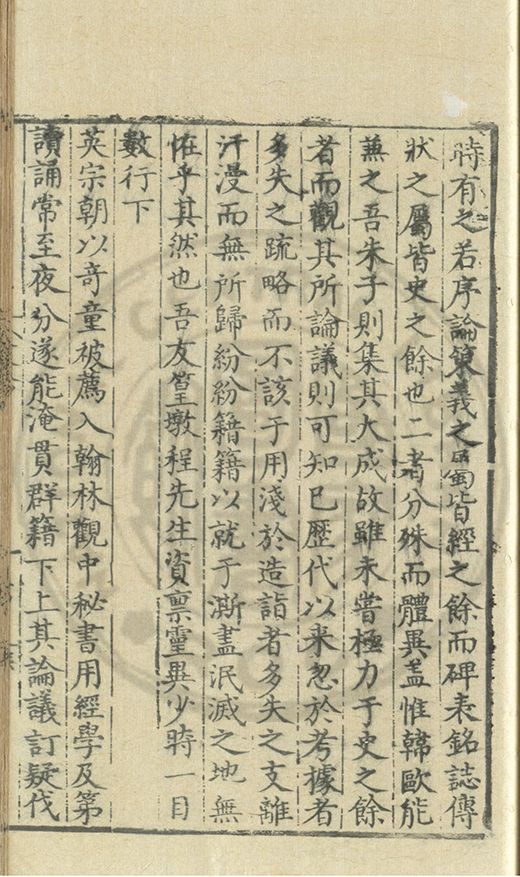 時有之若序論策義之屬皆經之餘而碑表銘誌傳
狀之屬皆史之餘也二者分殊而體異盖惟韓歐能
兼之吾朱子則集其大成故雖未甞極力于史之餘
者而觀其所論議則可知已歷代以来忽於考據者
多失之疏略而不該于用淺於造詣者多失之支離
汗漫而無所歸紛紛籍籍以就于澌盡泯滅之地無
恠乎其然也吾友篁墩程先生資禀靈異少時一目
數行下
英宗朝以竒童被薦入翰林觀中秘書用經學及第
讀誦常至夜分遂能淹貫群籍下上其論議訂疑伐